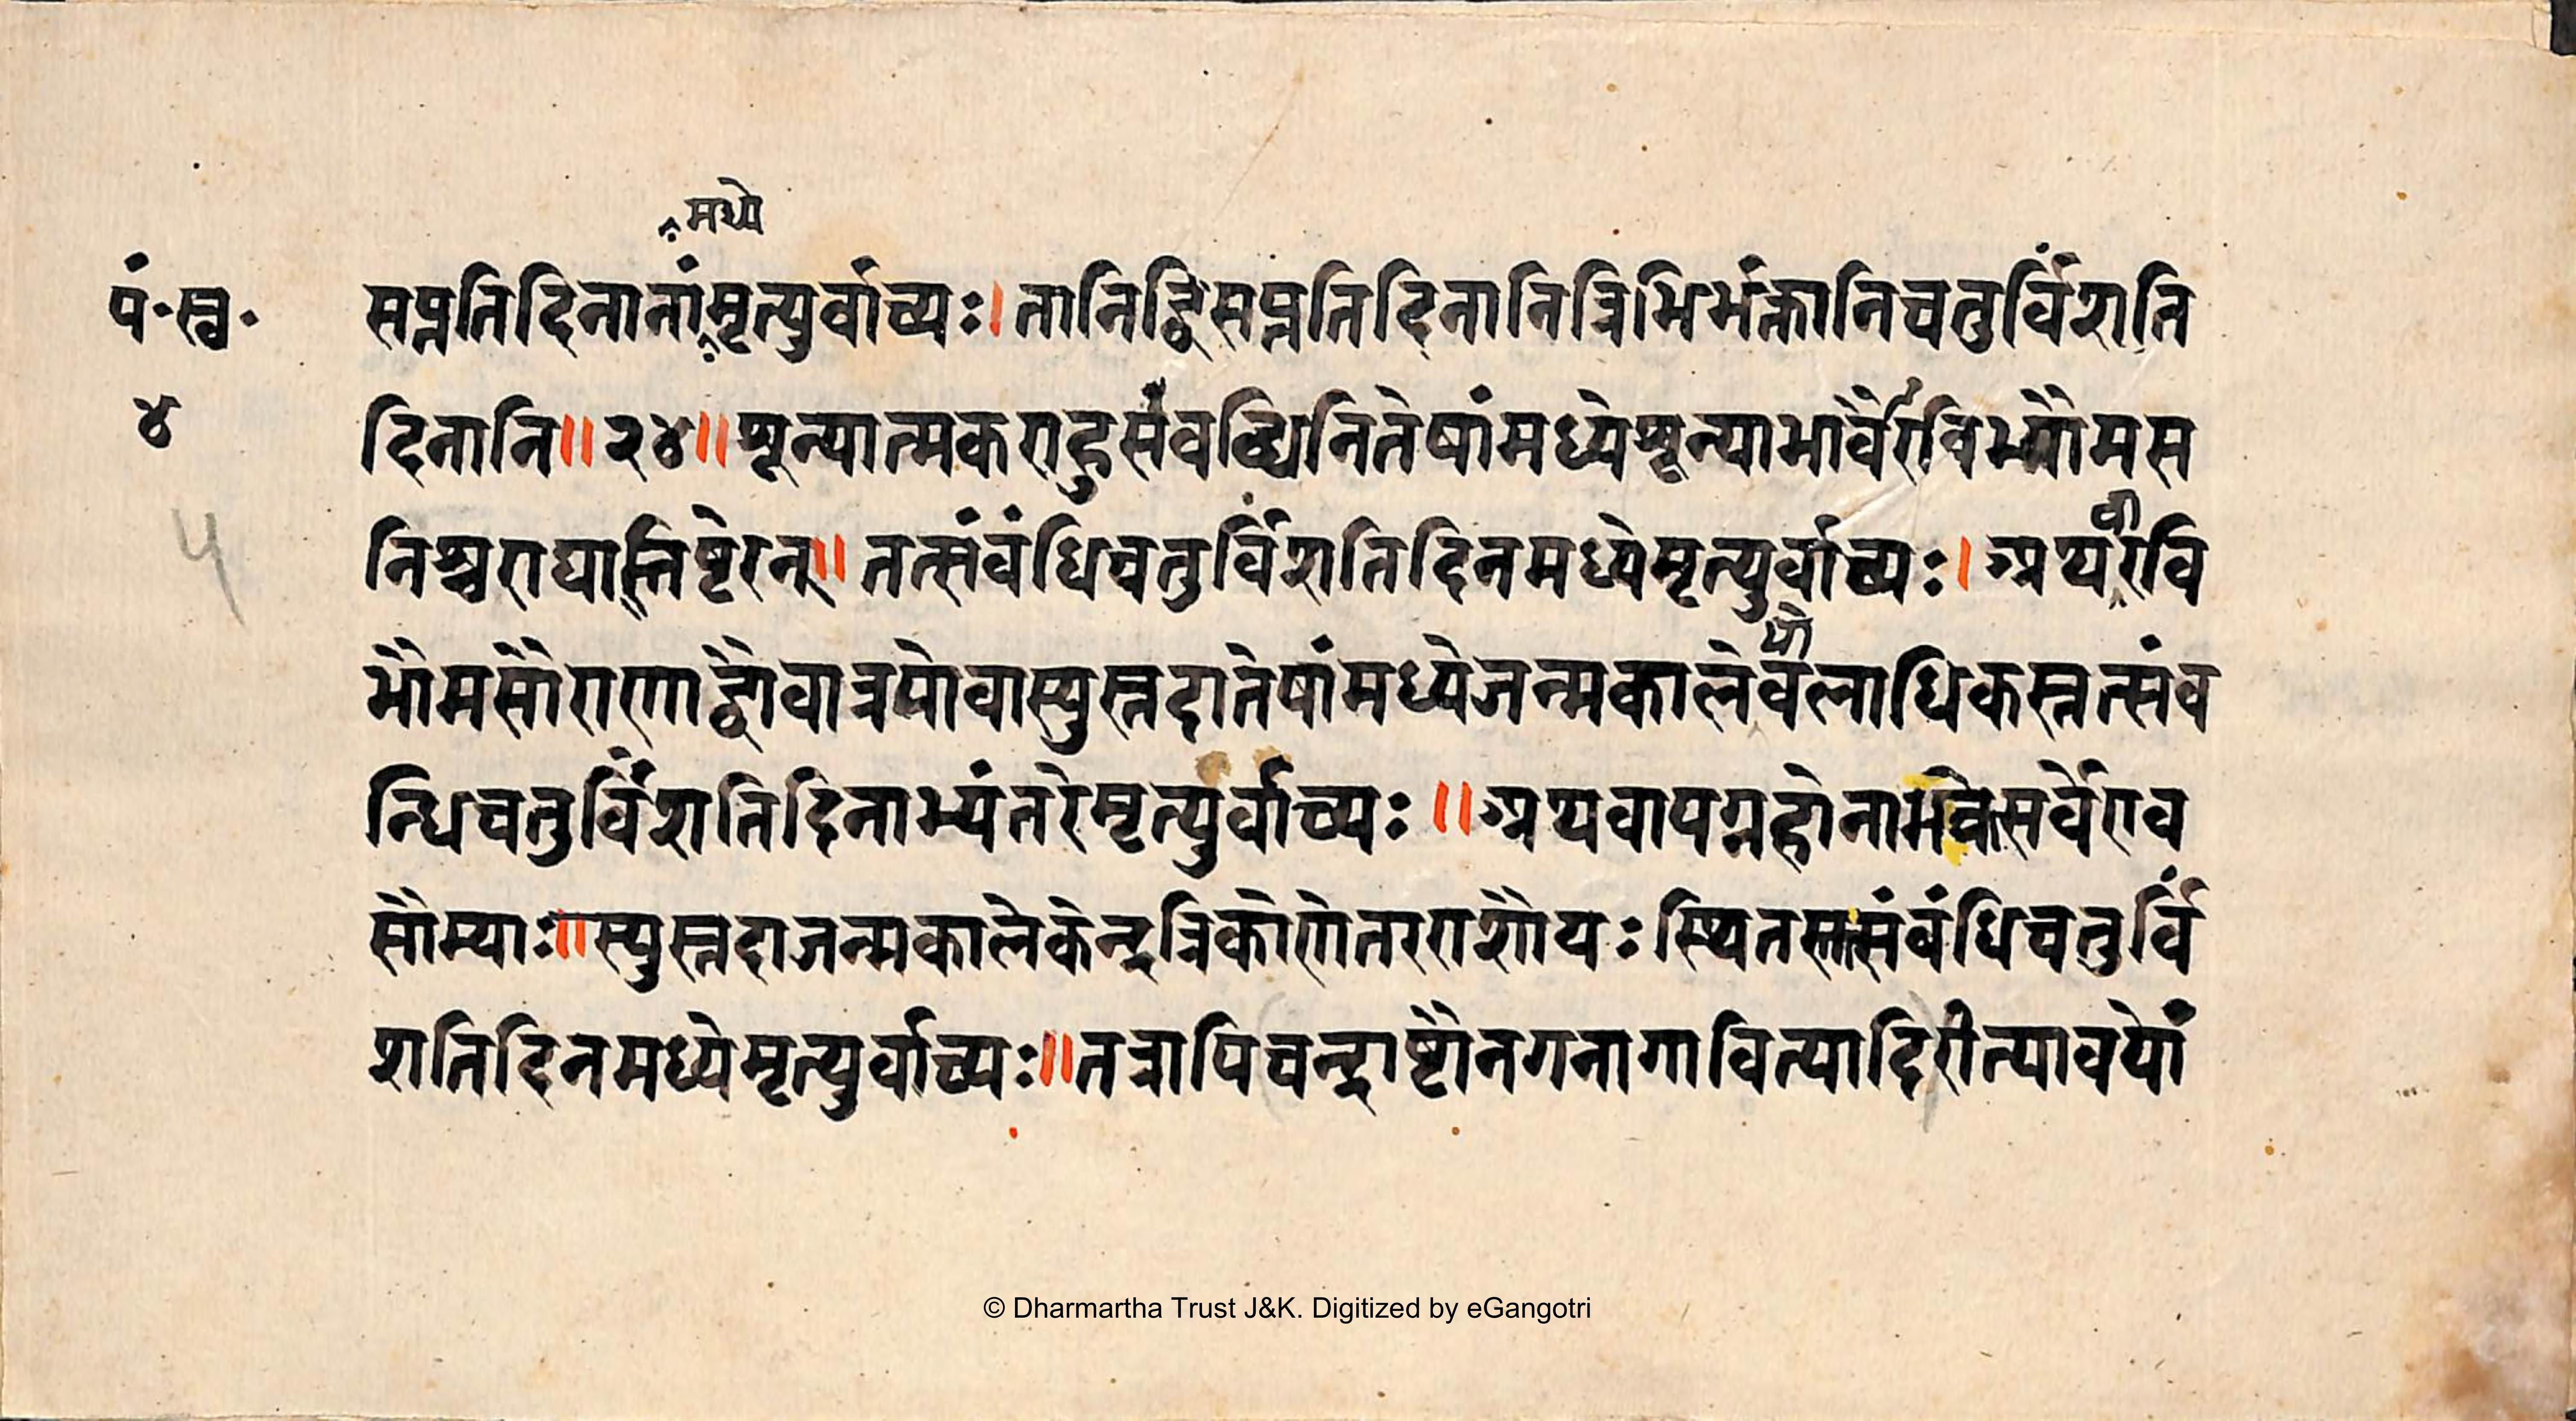 मध्ये
पं॰स्व॰ सप्ततिदिनानांमृत्युर्वाच्यः। तानिद्विसप्ततिदिनानित्रिभिर्भक्तानिचतुर्विंशति
४ दिनानि॥२४॥शून्यात्मकराहुसंवन्धिनितेषांमध्येशून्याभावेरविभौमस
५ निश्चराद्यास्तिष्टेरन्॥ तत्संवंधिचतुर्विंशतिदिनमध्येमृत्युर्वाच्यः। अथरवि
भौमसौराणाद्वौवात्रयोवास्युस्तदातेषांमध्येजन्मकालेवलाधिकस्तत्संव
न्धिचतुर्विंशतिदिनाभ्यंतरेमृत्युर्वाच्यः॥अथवापग्रहोनामसर्वेएव
सौम्याः॥स्युस्तदाजन्मकालेकेन्द्रत्रिकोणेतरराशौयःस्थितस्तत्संवंधिचतुर्वि
शतिदिनमध्येमृत्युर्वाच्यः॥तत्रापिचन्द्राष्टौनगनागावित्यादिरीत्यावयों
© Dharmartha Trust J&K. Digitized by eGangotri